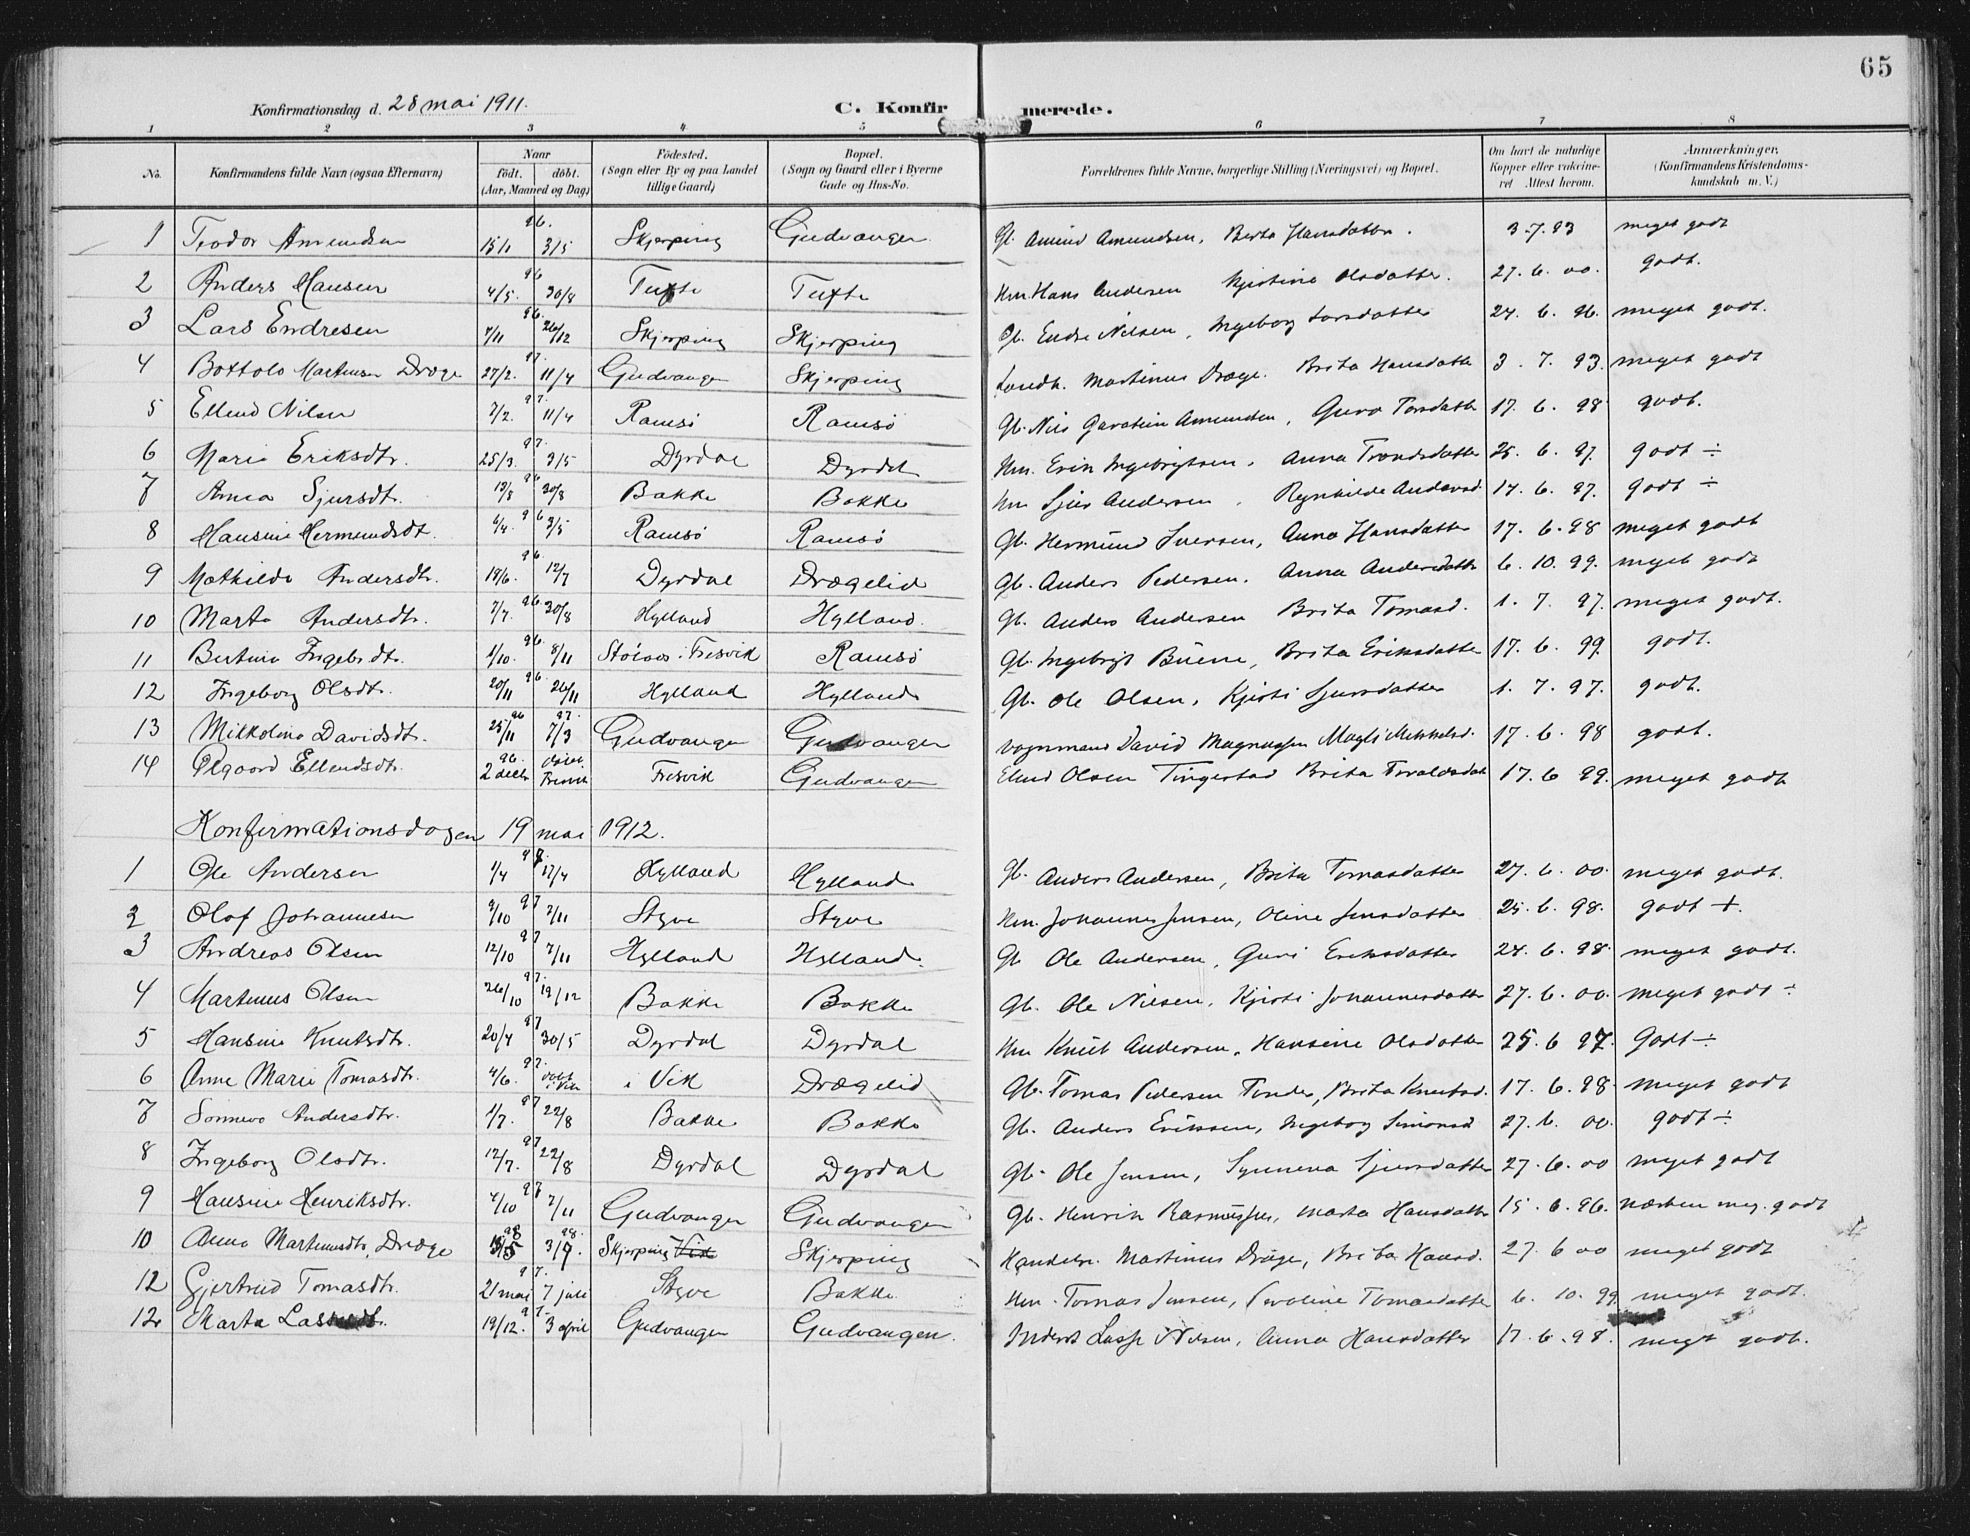 65
Konfirmationsdag d. 28 mai 1911. C. Konfirmerede.
1 2 3 4 5 6 7 8
No. Konfirmandens fulde Navn (ogsaa Efternavn) Naar født. døbt. (Aar, Maaned og Dag) Fødested. (Sogn eller By og paa Landet tillige Gaard) Bopæl. (Sogn og Gaard eller i Byerne Gade og Hus-No. Forældrenes fulde Navne, borgerlige Stilling (Næringsvei) og Bopæl. Om havt de naturlige Kopper eller vakcineret Attest herom. Anmærkninger. (Konfirmandens Kristendomskundskab m. V.)
1 Teodor Amundsen 96. 15/1 3/5 Skjerping Gudvangen Gb. Amund Amundsen, Berta Hansdatter. 3.7.93 meget godt
2 Anders Hansen 96 4/5. 30/8 Tufte Tufte Hm. Hans Andersen Kjistina Olsdatter. 27.6.00. godt.
3 Lars Endresen 96. 7/11 26/12 Skjerping Skjerping Gb. Endre Nilsen, Ingeborg Larsdatter 24.6.96. meget godt.
4 Bottolv Martinsen Dræge 97. 27/2. 11/4 Gudvangen Skjerping Landh. Martinus Dræge. Brita Hansdatter 3.7.93. meget godt
5 Ellend Nilsen 97. 7/2. 11/4 Ramsø Ramsø Gb. Nils Amundsen, Guro 17.6.98 godt.
6 Marie Eriksdtr. 97. 25/3. 3/5 Dyrdal Dyrdal Hm. Erik Ingebrigtsen. Anna Trondsdatter 25.6.97. godt ÷
7 Anna Sjursdt. 96 19/8 30/8 Bakke Bakke Hm Sjur Andersen, Ragnhilde Andersd. 17.6.97. godt ÷
8 Hansine Hermundsdt. 96 6/4. 3/5 Ramsø Ramsø Gb. Hermund Iversen, Anna Hansdatter 17.6.98 meget godt
9 Mathilde Andersdtr. 96. 18/6. 12/7 Dyrdal Drægelid Gb. Anders Pedersen. Anna Andersdatter 6.10.99. meget godt
10 Marta Andersdtr. 96 7/7. 30/8 Hylland Hylland. Gb. Anders Andersen Brita Tomasd. 1.7.97. meget godt.
11 Bertina Ingebr.dtr. 96. 1/10. 8/11 i Fresvik Ramsø Gb. Ingebrigt Brita Eriksdatter 17.6.99. godt.
12 Ingeborg Olsdtr. 96. 20/11 26/11 Hylland Hylland Gb. Ole Olsen, Kjisti Sjursdatter 1.7.97. godt.
13 Milkoline Davidsdt. 96 25/11 97. 7/3 Gudvangen Gudvangen Vognmand David Magnussen Magli Mikkelsd. 17.6.98 godt.
14 Olgaard Ellendsdtr. 96. 2 decbr Fresvik Fresvik Gudvangen Elend Olsen Tingestad Brita 17.6 99. meget godt
Konfirmationsdagen 19 mai 1912.
1 Ole Andersen 97. 1/4 17/4 Hylland Hylland Gb. Anders Andersen, Brita Tomasdatter 27.6.00. meget godt.
2 Olaf Johannesen 97 9/10 7/11 Styve Styve Hm. Johannes Jensen, Oline Jensdatter 25.6.98. godt +.
3 Andreas Olsen 97 12/10 7/11 Hylland Hylland. Gb Ole Andersen, Guri Eriksdatter 24.6.98. meget godt.
4 Martinus Olsen 97 26/10 19/12 Bakke Bakke Gb. Ole Nilsen, Kjisti Johannesdatter 27.6.00. meget godt ÷
5 Hansine Knutsdtr. 97 20/4 30/5 Dyrdal Dyrdal Hm Knut Andersen, Hansine Olsdatter 25.6 97. Godt ÷
6 Anne Marie Tomasdtr. 97. 4/6. døbt i Vik i Vik Drægelid Gb. Tomas Pedersen Brita Knutsd. 17.6.98. meget godt
7 Sønneva Andersdtr. 97 1/7. 22/8 Bakke Bakke Gb. Anders Erikssen, Ingeborg Simonsd 27.6. 00. godt ÷
8 Ingeborg Olsdtr. 97 12/7. 22/8 Dyrdal Dyrdal Gb. Ole Jensen, Synneva Sjursdatter 27.6.00 meget godt
9 Hansine Henriksdtr. 97 4/10 7/11 Gudvangen Gudvangen Gb. Henrik Rasmussen, Marta Hansdatter 15.6.96. næsten meg. godt
10 Anna Martinusdtr. Dræge 98 98. 3/7. Skjerping Vik Skjerping Handelsm. Martinus Dræge, Brita Hansd. 27.6 00 meget godt
12 Gjertrud Tomasdtr. 97. 21 mai 7 juli Styve Bakke Hm. Tomas Jensen, Karoline Tomasdatter 6.10.99. meget godt.
12 Marta 97. 19/12. 3 april Gudvangen Gudvangen. Inderst Lasse Nilsen, Anna Hansdatter 17.6.98. meget godt.